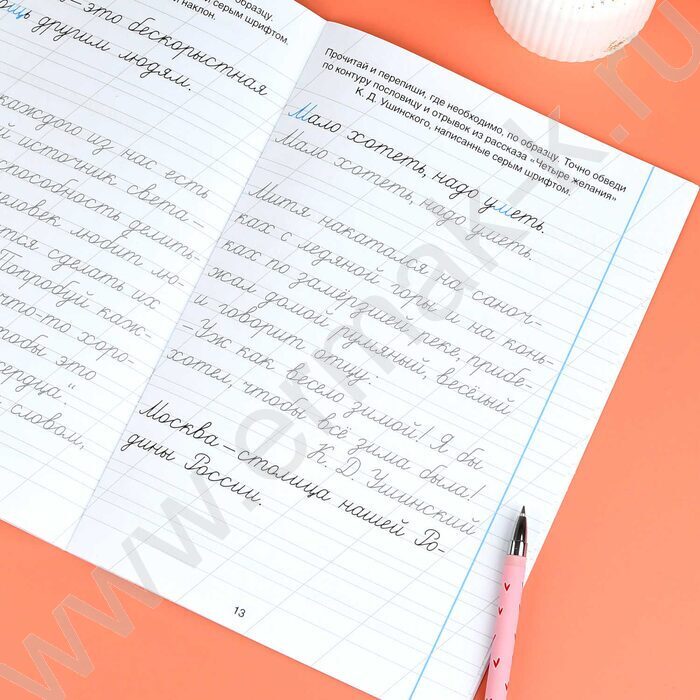 серым шрифтом.
и наклон.
— это бескорыстная
другим людям.
каждого из нас есть
й источник света —
способность делить-
человек любит лю-
тся сделать их
Попробуй каж-
что-то хоро-
чтобы это
сердца."
словом,
Прочитай и перепиши, где необходимо, по образцу. Точно обведи
по контуру пословицу и отрывок из рассказа «Четыре желания»
К. Д. Ушинского, написанные серым шрифтом.
Мало хотеть, надо уметь.
Мало хотеть, надо уметь.
Митя накатался на саноч-
ках с ледяной горы и на конь-
ках по замёрзшей реке, прибе-
жал домой румяный, весёлый
и говорит отцу:
— Уж как весело зимой! Я бы
хотел, чтобы всё зима была!
К. Д. Ушинский
Москва — столица нашей Ро-
дины России.
13
www.ermak-k.ru